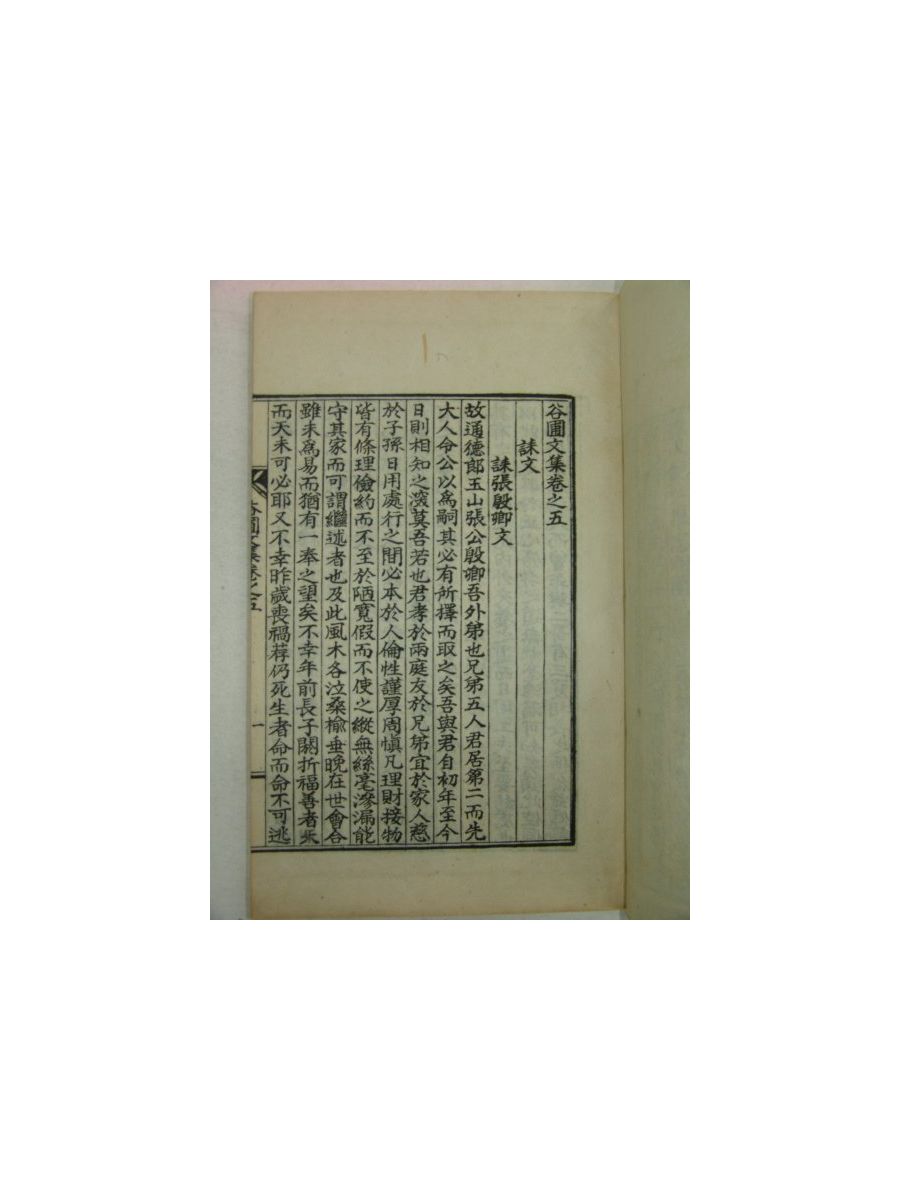 谷圃文集卷之五
誄文
誄張殷卿文
故通德郎玉山張公殷卿吾外弟也兄弟五人君居第二而先
大人令公以爲嗣其必有所擇而取之矣吾與君自初年至今
日則相知之深莫吾若也君孝於兩庭友於兄弟宜於家人慈
於子孫日用處行之間必本於人倫性謹厚周愼凡理財接物
皆有條理儉約而不至於陋寬假而不使之縱無絲毫滲漏能
守其家而可謂繼述者也及此風木各泣桑楡垂晩在世會合
雖未爲易而猶有一奉之望矣不幸年前長子關折福善者天
而天未可必耶又不幸昨歲喪禍荐仍死生者命而命不可逃
谷圃文集卷之五
一